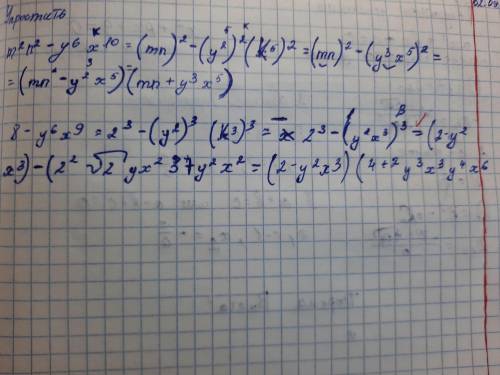 Упростить
02.09
m²n² - y⁶x¹⁰ = (mn)² - (y²)² (x⁵)² = (mn)² - (y³x⁵)² =
= (mn - y³x⁵)(mn + y³x⁵)
8 - y⁶x⁹ = 2³ - (y²)³ (x³)³ = 2³ - (y²x³)³ = (2 - y²
x³) - (2² - √2 yx² y²x² = (2 - y²x³) (4 + 2y³x³y⁴x⁶